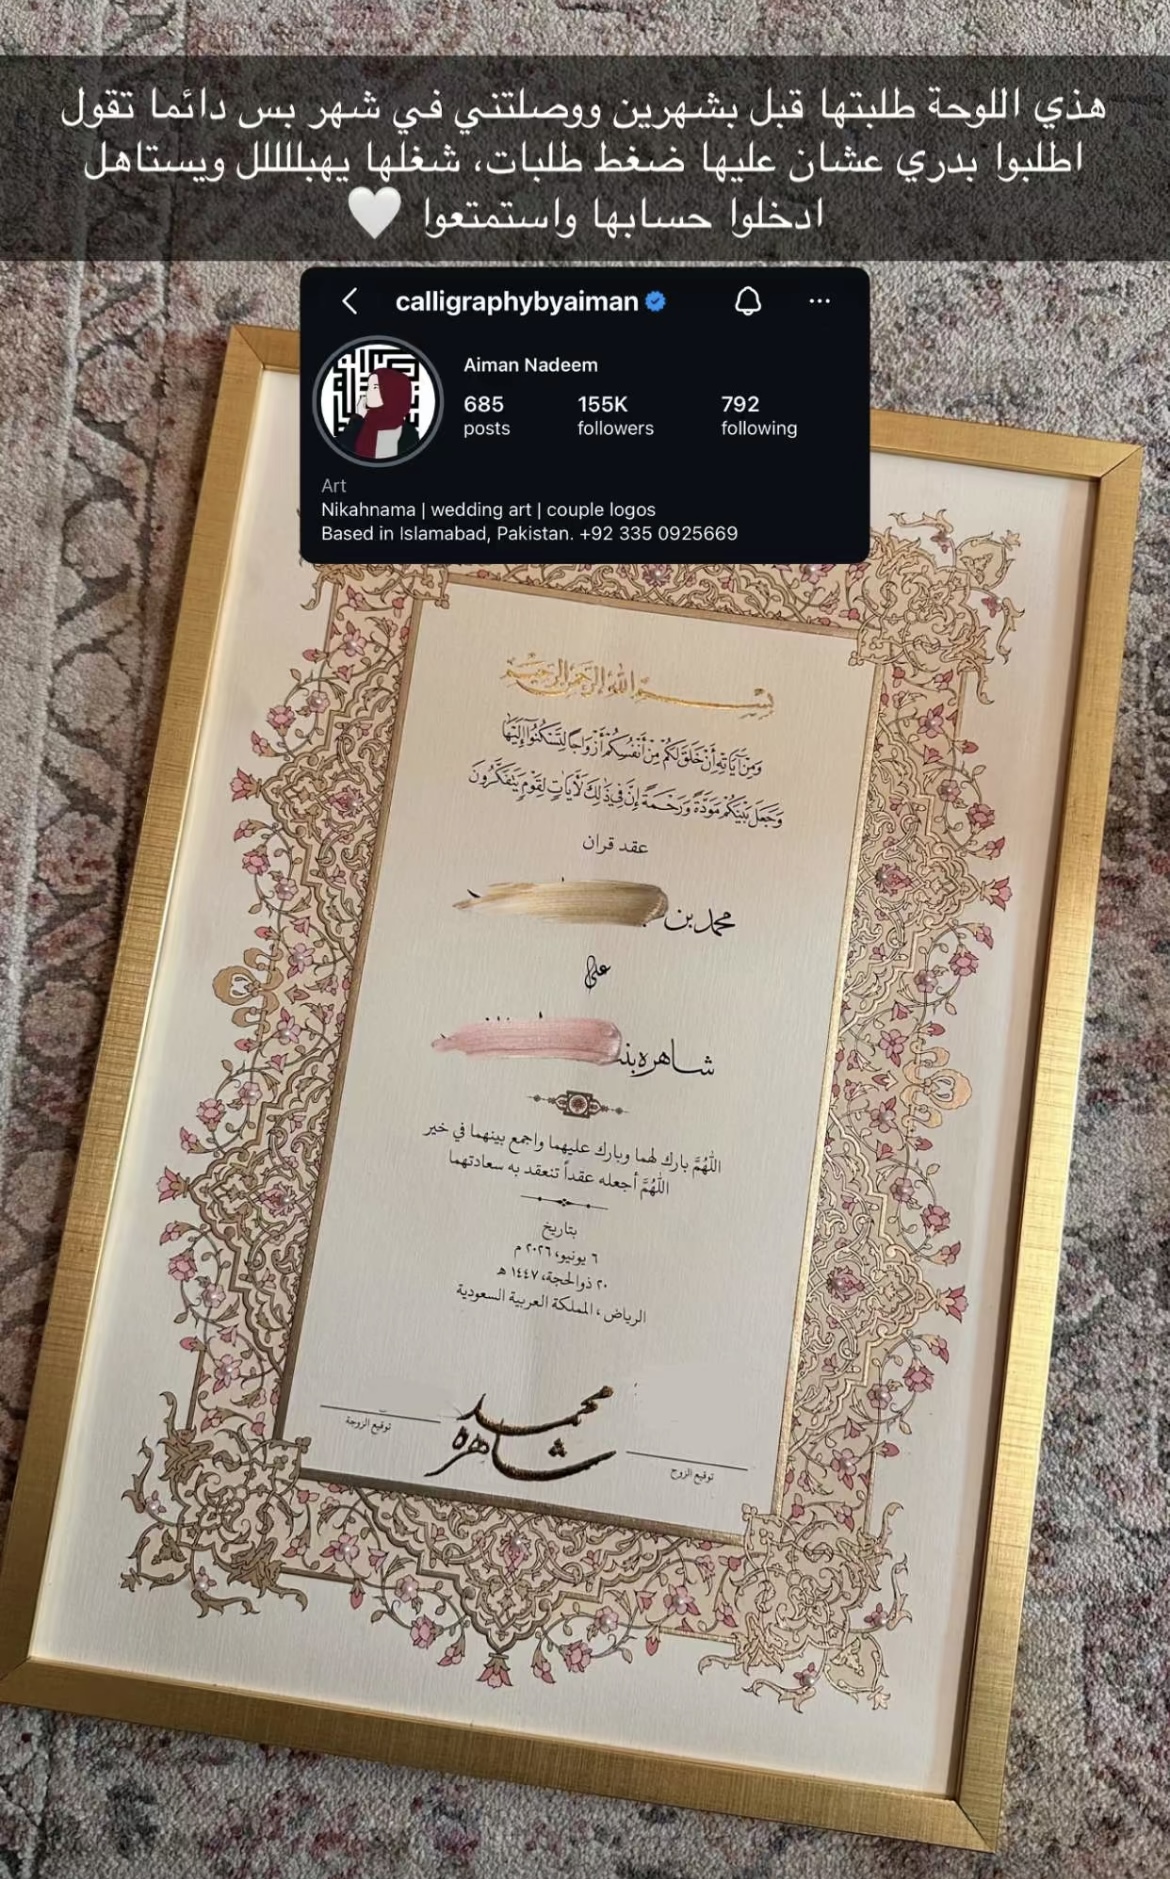 هذي اللوحة طلبتها قبل بشهرين ووصلتني في شهر بس دائما تقول
اطلبوا بدري عشان عليها ضغط طلبات، شغلها يهبلللل ويستاهل
ادخلوا حسابها واستمتعوا 🤍
calligraphybyaiman
Aiman Nadeem
685 155K 792
posts followers following
Art
Nikahnama | wedding art | couple logos
Based in Islamabad, Pakistan. +92 335 0925669
بسم الله الرحمن الرحيم
وَمِنْ آيَاتِهِ أَنْ خَلَقَ لَكُمْ مِنْ أَنْفُسِكُمْ أَزْوَاجًا لِتَسْكُنُوا إِلَيْهَا
وَجَعَلَ بَيْنَكُمْ مَوَدَّةً وَرَحْمَةً إِنَّ فِي ذَٰلِكَ لَآيَاتٍ لِقَوْمٍ يَتَفَكَّرُونَ
عقد قران
محمد بن
على
شاهره
اللَّهُمَّ بارك لهما وبارك عليهما واجمع بينهما في خير
اللَّهُمَّ أجعله عقداً تنعقد به سعادتهما
بتاريخ
٦ يونيو، ٢٠٢٦ م
٢٠ ذوالحجة، ١٤٤٧ هـ
الرياض ، المملكة العربية السعودية
محمد
شاهره
توقيع الزوج
توقيع الزوجة